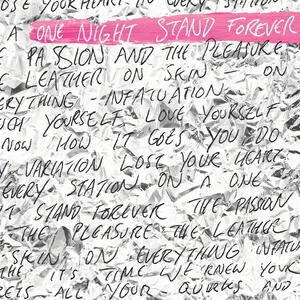 OSE YOUR HEART IN EVERY STATION
A ONE NIGHT STAND FOREVER
PASSION AND THE PLEASURE
E LEATHER ON SKIN ON
ERYTHING - INFATUATION
UCH YOURSELF LOVE YOURSELF
NOW HOW IT GOES YOU DO
Y VARIATION LOSE YOUR HEART
EVERY STATION ON A ONE
T STAND FOREVER THE PASSION
THE PLEASURE THE LEATHER
SKIN ON EVERYTHING INFATU
THE IT'S TIME WE KNEW YOUR
RETS ALL YOUR QUIRKS AND